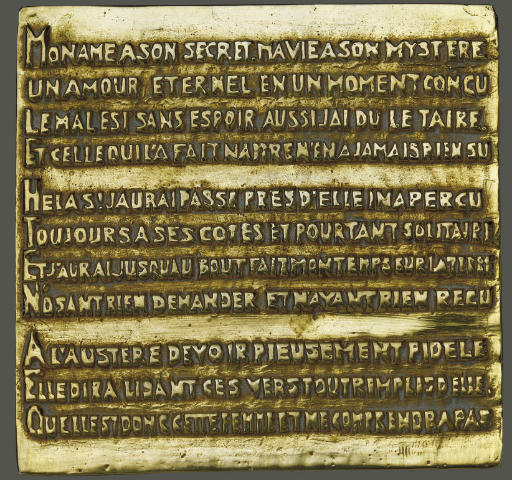 MON AME A SON SECRET MA VIE A SON MYSTERE
UN AMOUR ETERNEL EN UN MOMENT CONCU
LE MAL EST SANS ESPOIR AUSSI JAI DU LE TAIRE
ET CELLE QUI L'A FAIT N'A JAMAIS RIEN SU
HELAS! J'AURAI PASSE PRES D'ELLE INAPERCU
TOUJOURS A SES COTES ET POURTANT SOLITAIRE
ET J'AURAI JUSQUAU BOUT FAIT MON TEMPS SUR LA TERRE
N'OSANT RIEN DEMANDER ET NAYANT RIEN RECU
A L'AUSTERE DEVOIR PIEUSEMENT FIDELE
ELLE DIRA LISANT CES VERS TOUT REMPLIS D'ELLE.
QUELLE EST DONC CETTE FEMME ET NE COMPRENDRA PAS